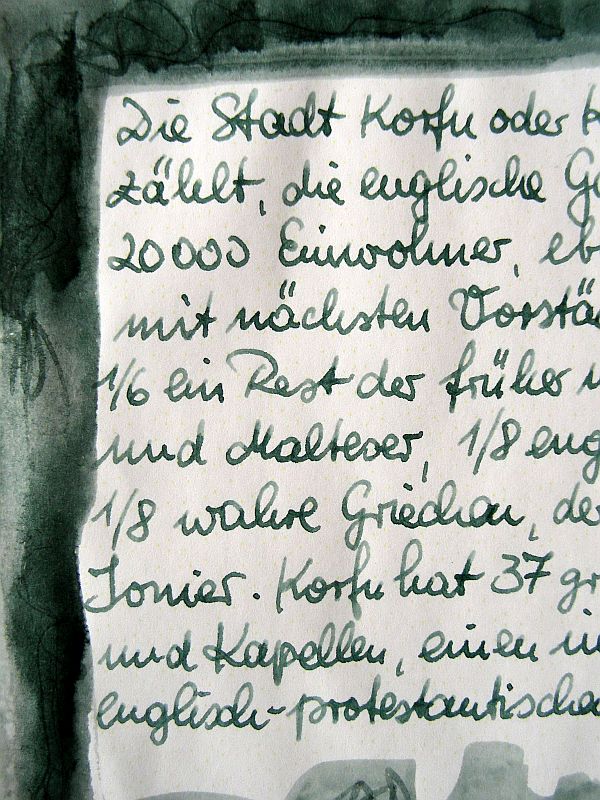 Die Stadt Korfu oder
zählt, die englische
20000 Einwohner,
mit nächsten
1/6 ein Rest der früher
und Malteser, 1/8
1/8 wahre Griechen,
Ionier. Korfu hat 37
und Kapellen, einen
englisch-protestantischen